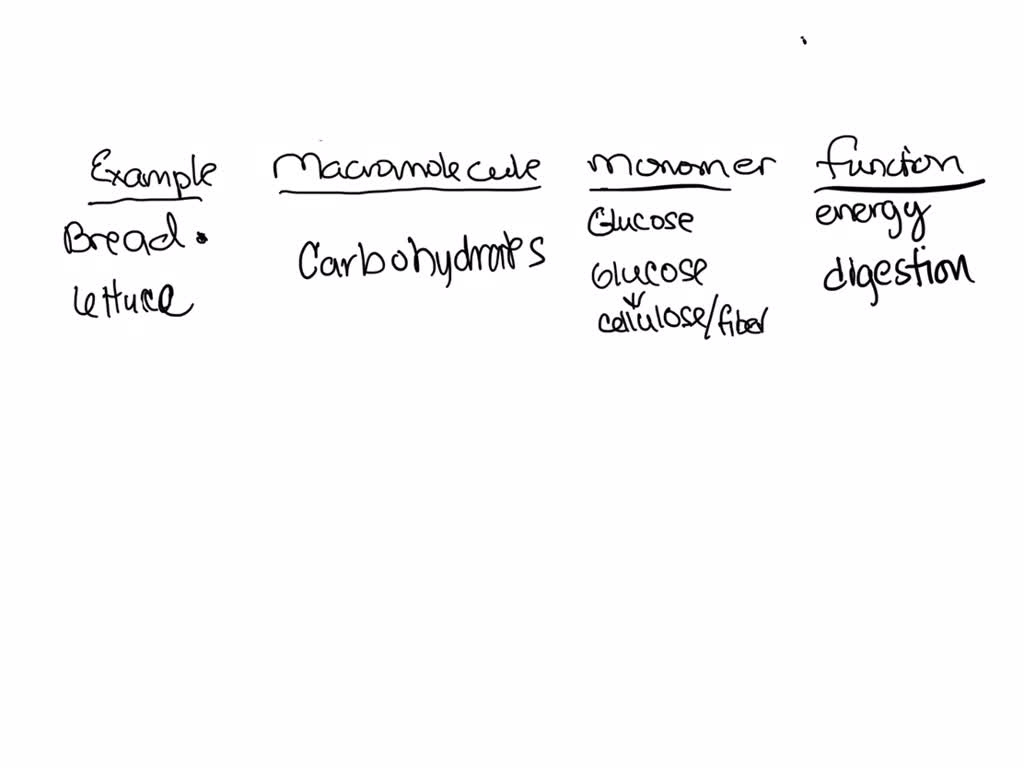 Example Macromolecule Monomer Function
Bread Carbohydrates Glucose energy
Lettuce Glucose digestion
cellulose/fiber